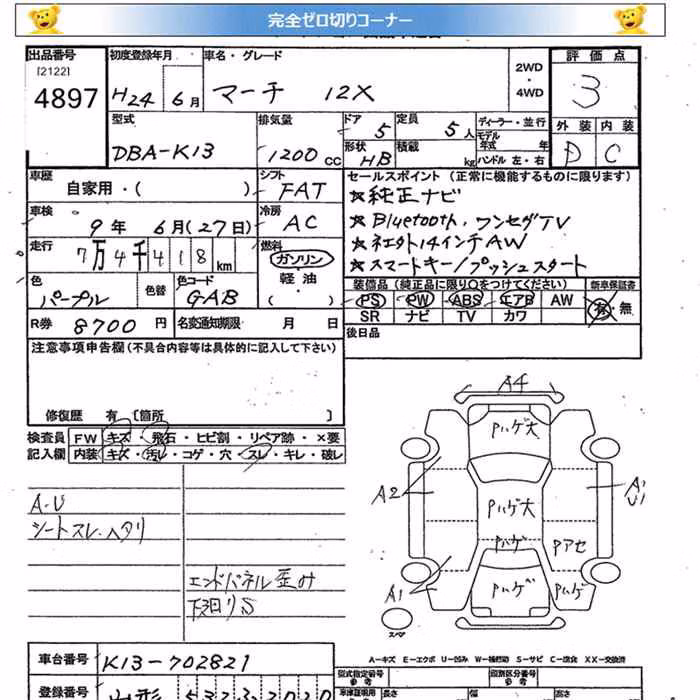 完全ゼロ切りコーナー
出品番号 初度登録年月 車名・グレード 2WD 4WD 評価点
[2122]
4897 H24 6月 マーチ 12X 3
型式 排気量 ドア 定員 ディーラー・並行 外装 内装
DBA-K13 1200cc 5 5人 モデル年式 年 D C
形状 HB 積載 kg ハンドル 左・右
車歴 自家用・( ) シフト FAT セールスポイント (正常に機能するものに限ります)
★純正ナビ
車検 9年 6月(27日) 冷房 AC ★Bluetooth、ワンセグTV
走行 7万4千418km 燃料 ガソリン 軽油 ( ) ★社外14インチAW
★スマートキー/プッシュスタート
色 パープル 色替 色コード GAB 装備品 (純正品に限り○をつけてください) 新車保証書
PS PW ABS エアB AW 有・無
R券 8700円 名変通知期限 月 日 SR ナビ TV カワ
注意事項申告欄(不具合内容等は具体的に記入して下さい) 後日品
修復歴 有 〔箇所 〕
検査員 FW キズ・飛石・ヒビ割・リペア跡・×要
記入欄 内装 キズ・汚レ・コゲ・穴・スレ・キレ・破レ
A4
Pハゲ大
A2 A1 U1
A・U
シートスレ、ヘタリ
Pハゲ大
Pハゲ Pアセ
エンドパネル歪み
下回りS
A1 Pハゲ Pハゲ
スペア
A-キズ E-エクボ U-凹み W-補修跡 S-サビ C-腐食 XX-交換済
車台番号 K13-702821
型式指定番号 参考 類別区分番号 参考
登録番号 山形 532 す 2020
車庫証明用 長さ 幅 高さ